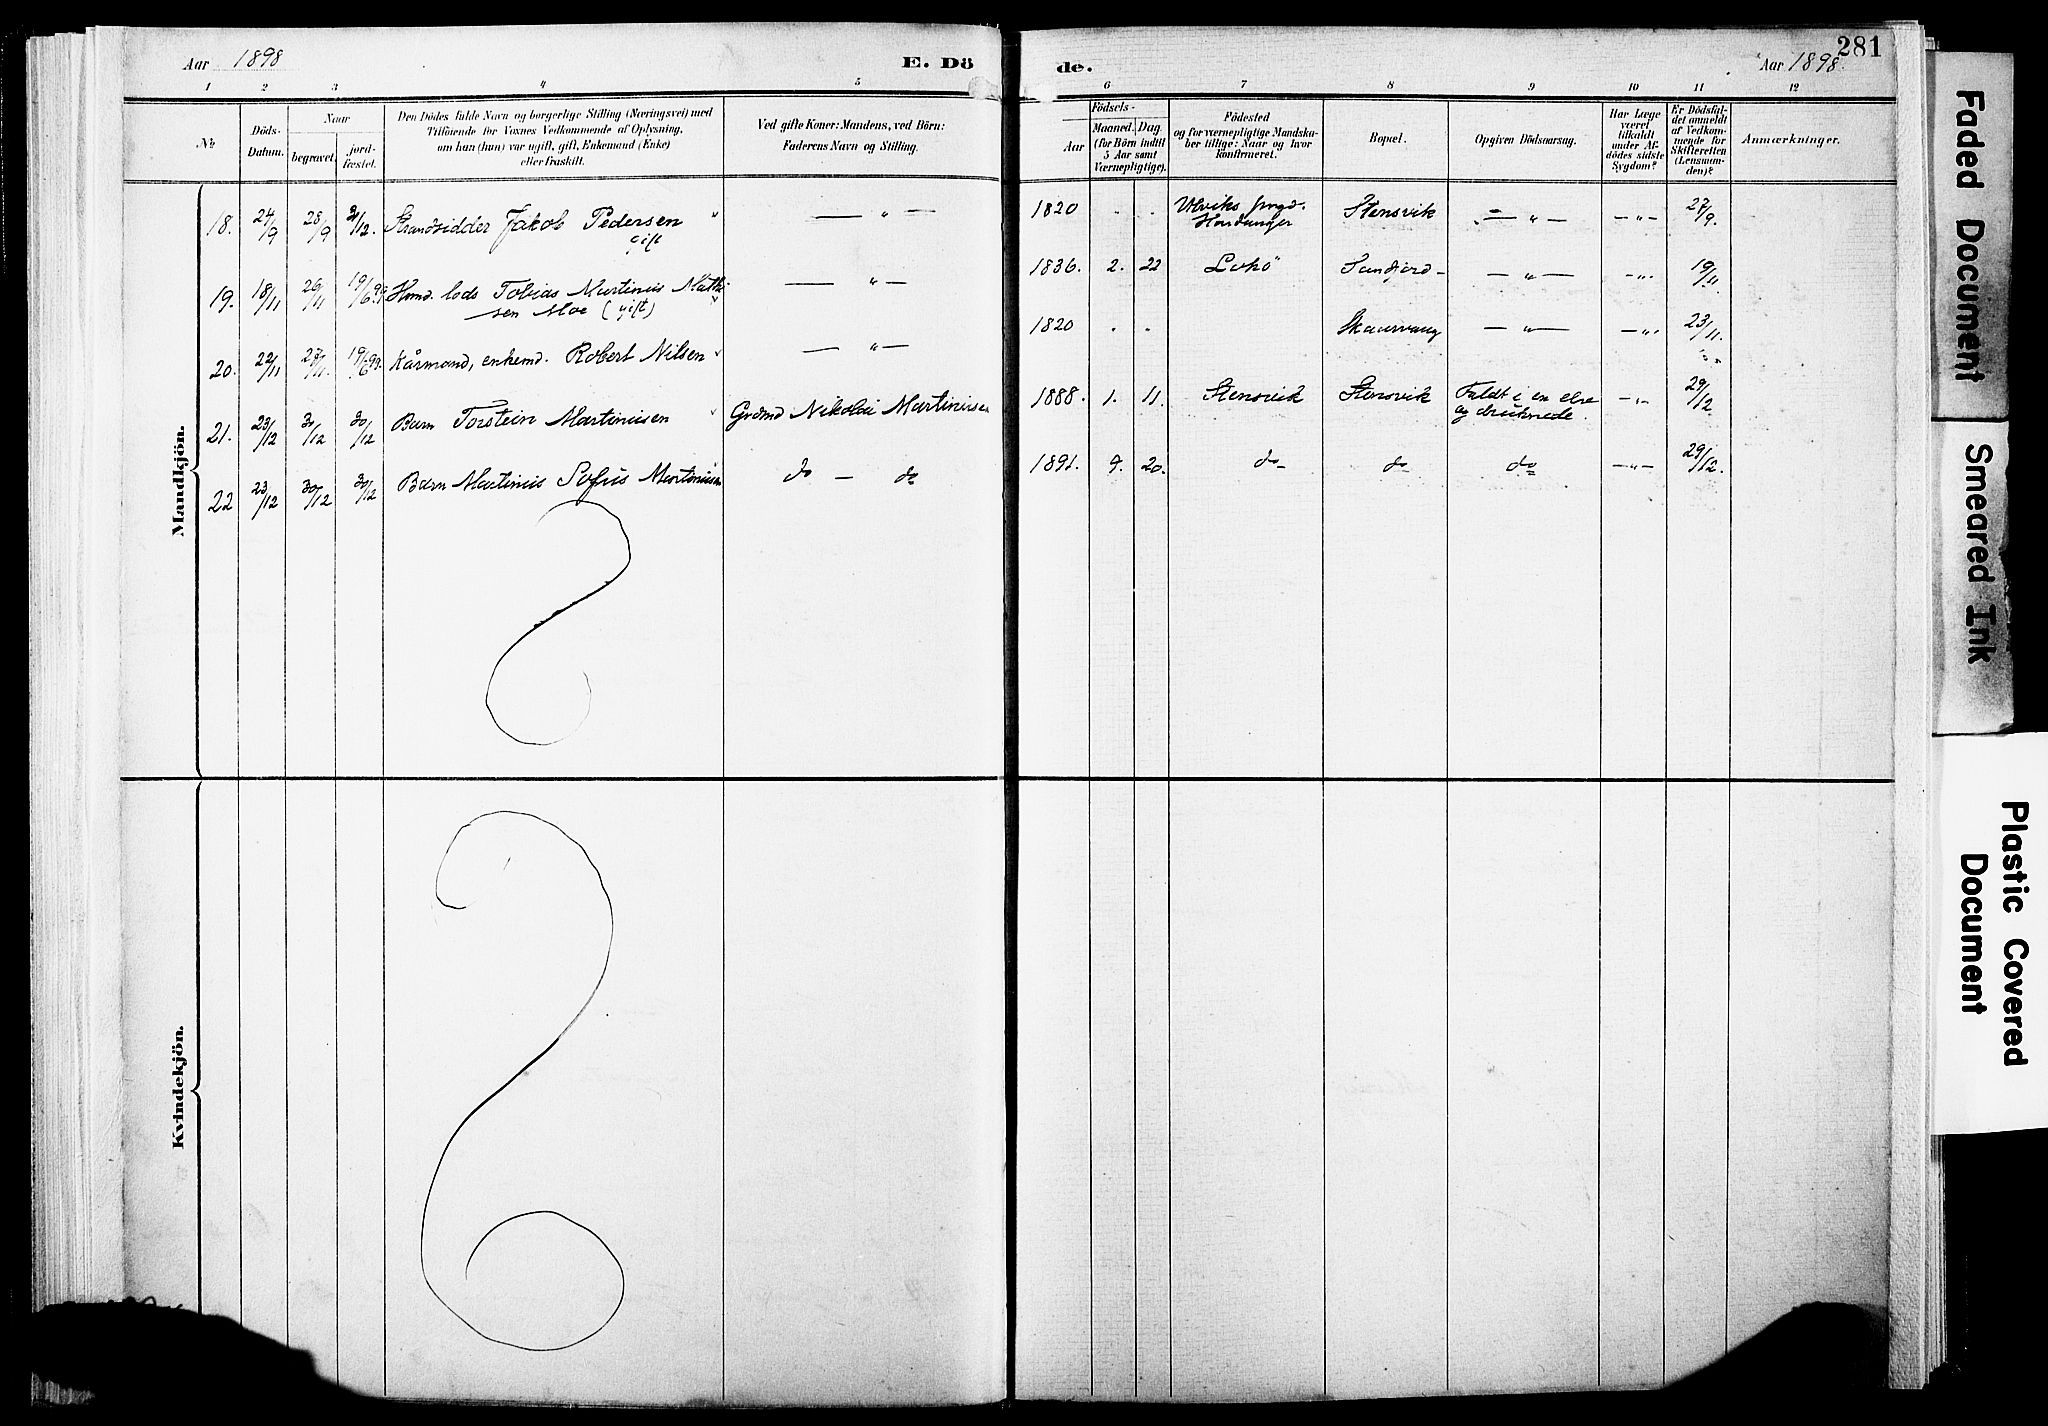 Aar 1898
E. Dö
de.
Aar 1898.
281
1 2 3 4 5
6 7 8 9 10 11 12
No
Döds-
Datum.
Naar
begravet.
jord-
fæstet.
Den Dödes fulde Navn og borgerlige Stilling (Næringsvei) med
Tilföiende for Voxnes Vedkommende af Oplysning,
om han (hun) var ugift, gift, Enkemand (Enke)
eller fraskilt.
Ved gifte Koner: Mandens, ved Börn:
Faderens Navn og Stilling.
Födsels-
Aar
Maaned. Dag
(for Börn indtil
5 Aar samt
Værnepligtige).
Födested
og for værnepligtige Mandska-
ber tillige: Naar og hvor
konfirmeret.
Bopæl.
Opgiven Dödsaarsag.
Har Læge
været
tilkaldt
under Af-
dödes sidste
Sygdom?
Er Dödsfal-
det anmeldt
af Vedkom-
mende for
Skifteretten
(Lensman-
den)?
Anmærkninger.
Mandkjön.
18. 24/9 28/9 31/12. Strandsidder Jakob Pedersen " — " — 1820 Ulviks prgd. Stensvik — " — — " — 27/9.
gift Hardanger
19. 18/11 26/11 19/6 99 Hmd. lods Tobias Martinus Math- — " — 1836. 2. 22 Lekö Sandjord — " — — " — 19/11.
sen Moe (gift)
20. 22/11 27/11. 19/6 99. Kårmand, enkemd. Robert Nilsen — " — 1820 Skaarvang — " — — " — 23/11.
21. 23/12 31/12 30/12 Barn Torstein Martinusen Grdmd Nikolai Martinusen 1888. 1. 11. Stensvik Stensvik Faldt i en elve — " — 29/12.
og druknede.
22 23/12 30/12 30/12 Barn Martinus Sofus Martinusen do — do 1891. 9. 20. do do do — " — 29/12.
Kvindekjön.
Faded Document
Smeared Ink
Plastic Covered
Document